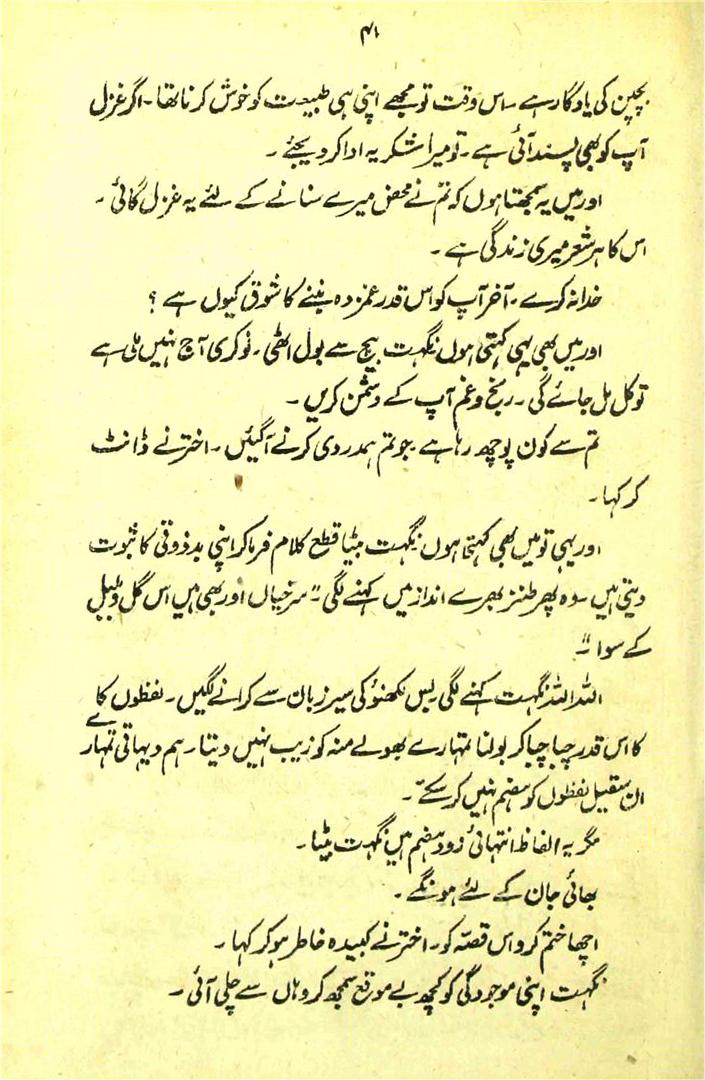 ۴۱
بچپن کی یادگار ہے ۔ اس وقت تو مجھے اپنی ہی طبیعت کو خوش کرنا تھا ۔ اگر غزل
آپ کو بھی پسند آئی ہے ۔ تو میرا شکریہ ادا کر دیجئے ۔
اور میں یہ سمجھتا ہوں کہ تم نے محض میرے سنانے کے لئے یہ غزل گائی ۔
اس کا ہر شعر میری زندگی ہے ۔
خدا نہ کرے ۔ آخر آپ کو اس قدر غمزدہ بننے کا شوق کیوں ہے ؟
اور میں بھی یہی کہتی ہوں نگہت بیچ سے بول اٹھی ۔ نوکری آج نہیں ملی ہے
تو کل مل جائے گی ۔ رنج و غم آپ کے دشمن کریں ۔
تم سے کون پوچھ رہا ہے جو تم ہمدردی کرنے آ گئیں ۔ اختر نے ڈانٹ
کر کہا ۔
اور یہی تو میں بھی کہتا ہوں نگہت بیٹا قطع کلام فرما کر اپنی بدذوقی کا ثبوت
دیتی ہیں ۔ وہ پھر طنز بھرے انداز میں کہنے لگی ۔ " سرخیاں اور بھی ہیں اس گل و بلبل
کے سوا ۔"
اللہ اللہ نگہت کہنے لگی بس لکھنؤ کی سیر زبان سے کرانے لگیں ۔ لفظوں کا
کا اس قدر چبا چبا کر بولنا تمہارے بھولے منہ کو زیب نہیں دیتا ۔ ہم دیہاتی تمہارے
ان سقیل لفظوں کو ہضم نہیں کر سکتے " ۔
مگر یہ الفاظ انتہائی زود ہضم ہیں نگہت بیٹا ۔
بھائی جان کے لئے ہونگے ۔
اچھا ختم کرو اس قصّہ کو ۔ اختر نے کبیدہ خاطر ہو کر کہا ۔
نگہت اپنی موجودگی کو کچھ بے موقع سمجھ کر وہاں سے چلی آئی ۔